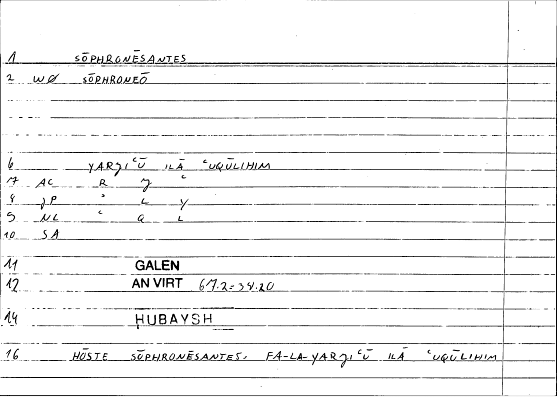 1 SŌPHRONĒSANTES
2 WØ SŌPHRONEŌ
6 YARJIʿŪ ILĀ ʿUQŪLIHIM
7 AC R J ʿ
8 JP ʾ L Y
9 NL ʿ Q L
10 SA
11 GALEN
12 AN VIRT 67.2=34.20
14 HUBAYSH
16 HŌSTE SŌPHRONĒSANTES. FA-LA-YARJIʿŪ ILĀ ʿUQŪLIHIM